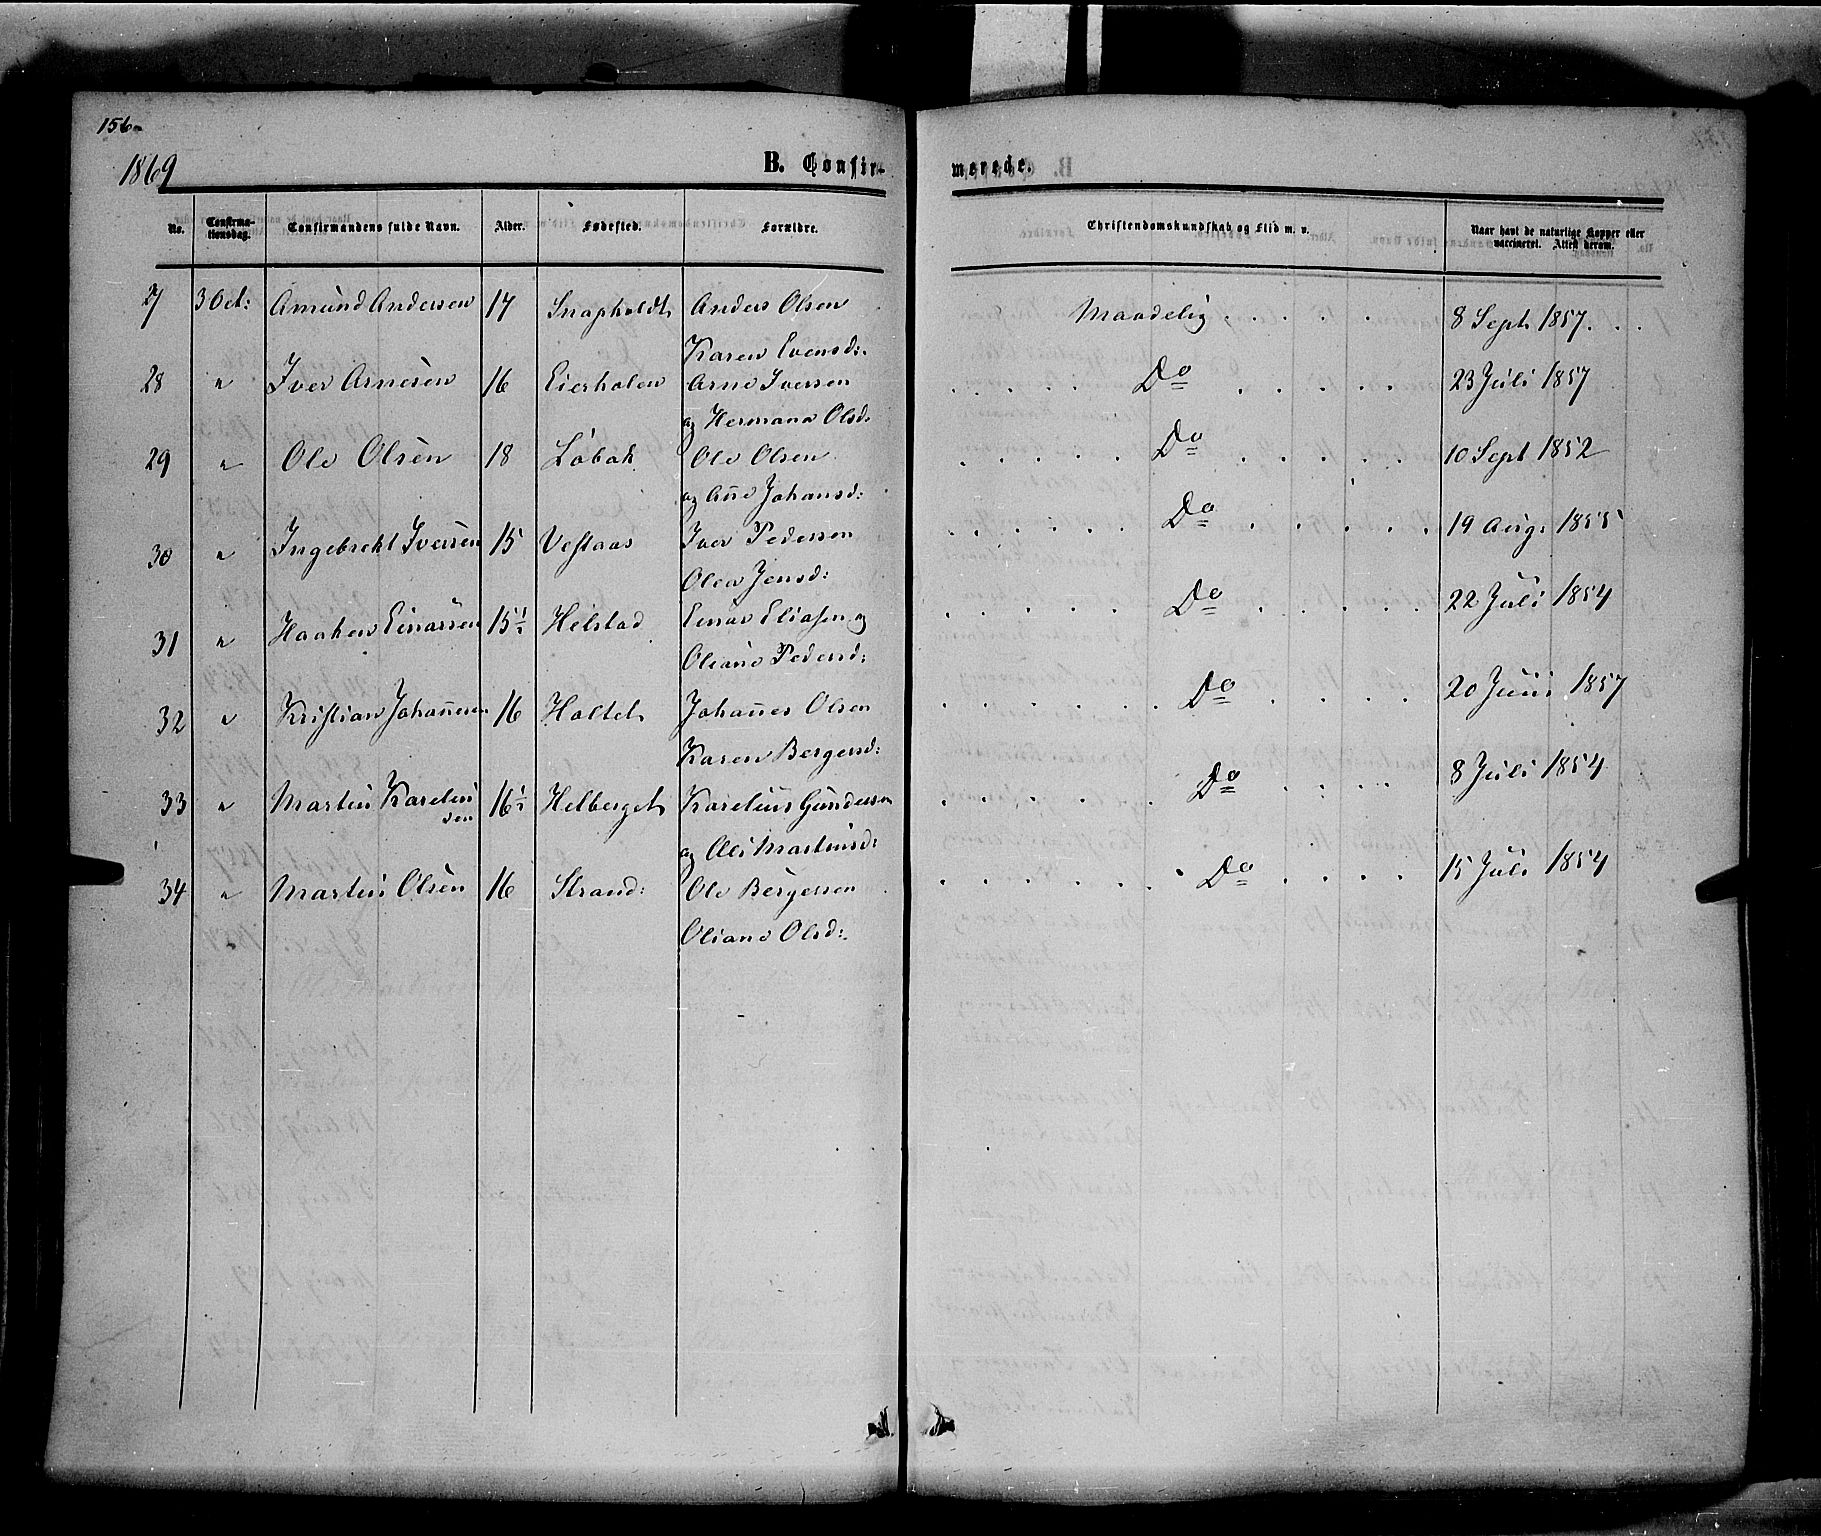 156
1869
B. Confir-
merede.
No. Confirmationsdag. Confirmandens fulde Navn. Alder. Fødested. Forældre. Christendomskundskab og Flid m. v. Naar havt de naturlige Kopper eller vaccineret. Attest derom.
27 3 Oct: Amund Andersen 17 Snapholdt Anders Olsen Maadelig . . . . . 8 Sept 1857. . .
Karen Evensd:
28 " Iver Arnesen 16 Eierholen Arne Iversen . . . . Do . . . . . 23 Juli 1857
og Hermana Olsd:
29 " Ole Olsen 18 Løbak Ole Olsen . . . . . Do . . . . . 10 Sept 1852
og Ane Johansd:
30 " Ingebrekt Iversen 15 Vestaas Iver Pedersen . . . . . Do . . . . . 19 Aug. 1855
Olea Jensd:
31 " Haaken Einarsen 15½ Helstad Einar Eliasen og . . . . . Do . . . . . 22 Juli 1854
Oliane Pedersd:
32 " Kristian Johannesen 16 Holtet Johannes Olsen . . . . . Do . . . . 20 Juni 1857
Karen Bergersd:
33 " Martin Karelius 16½ Helberget Karelius Gundersen . . . . . Do . . . . 8 Juli 1854
sen
og Oli Martinsd:
34 " Martin Olsen 16 Strand: Ole Bergersen . . . . . . Do . . . . 15 Juli 1854
Oliane Olsd: